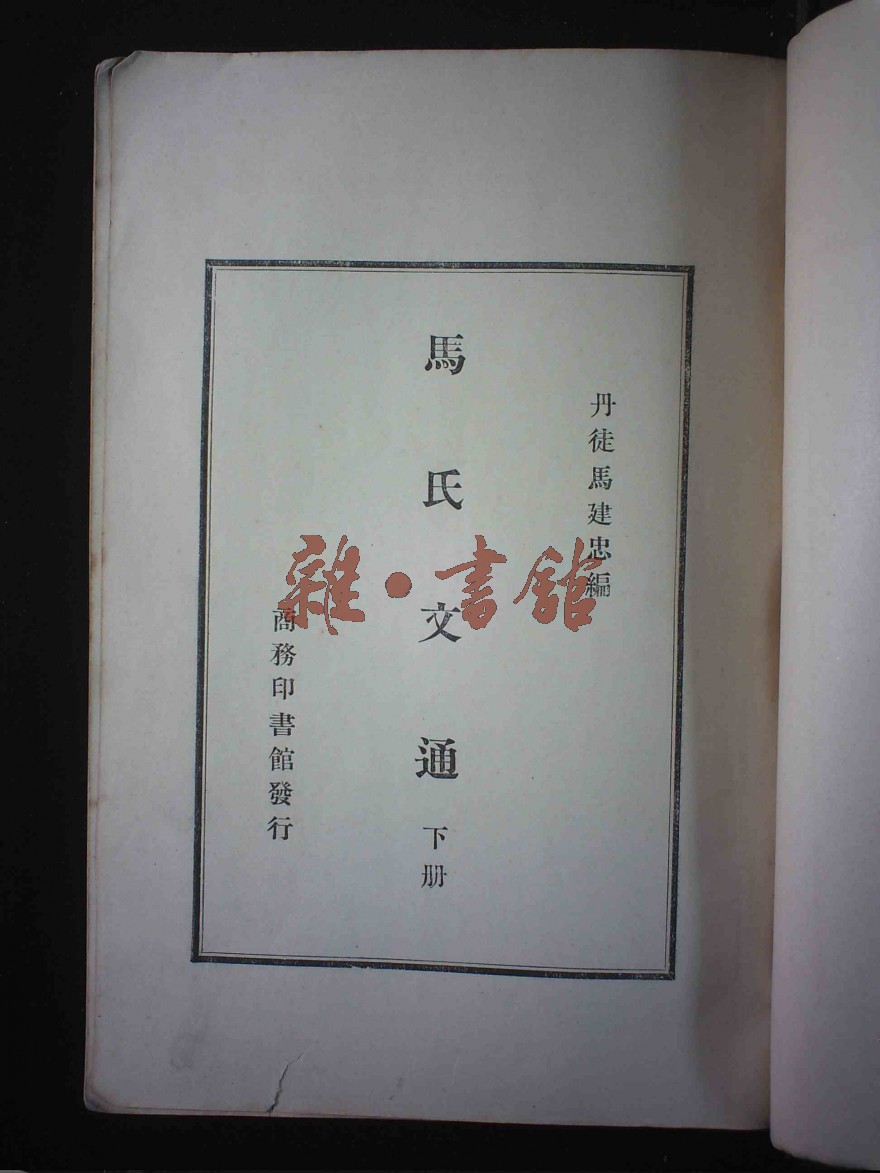 丹徒馬建忠編
馬氏文通下册
商務印書館發行
雜·書館